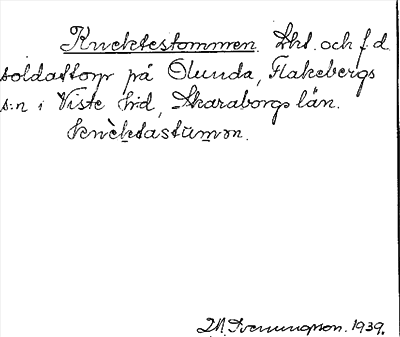 Knektestommen. Lht. och f.d.
soldattorp på Olunda, Flakebergs
s:n i Viste hd, Skaraborgs län.
knèktastùmən.
1939.